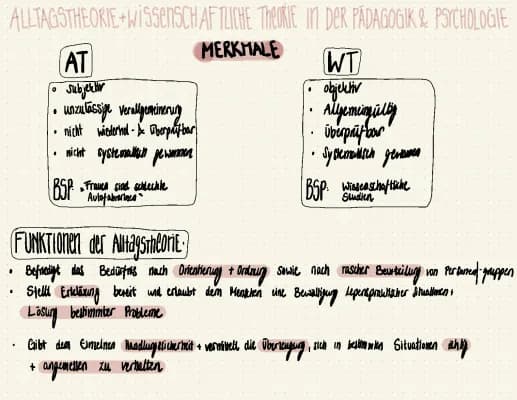 ALLTAGSTHEORIE + WISSENSCHAFTLICHE THEORIE IN DER PÄDAGOGIK & PSYCHOLOGIE
MERKMALE
AT
• subjektiv
• unzulässige Verallgemeinerung
• nicht wiederhol- & überprüfbar
• nicht systematisch gewonnen
BSP: „Frauen sind schlechte
Autofahrerinnen"
WT
• objektiv
• Allgemeingültig
• überprüfbar
• systematisch gewonnen
BSP: Wissenschaftliche
Studien
FUNKTIONEN der Alltagstheorie:
• Befriedigt das Bedürfnis nach Orientierung + Ordnung sowie nach rascher Beurteilung von Personen/-gruppen
• Stellt Erklärung bereit und erlaubt dem Menschen eine Bewältigung lebenspraktischer Situationen,
Lösung bestimmter Probleme
• Gibt dem Einzelnen Handlungssicherheit + vermittelt die Überzeugung, sich in bestimmten Situationen richtig
+ angemessen zu verhalten